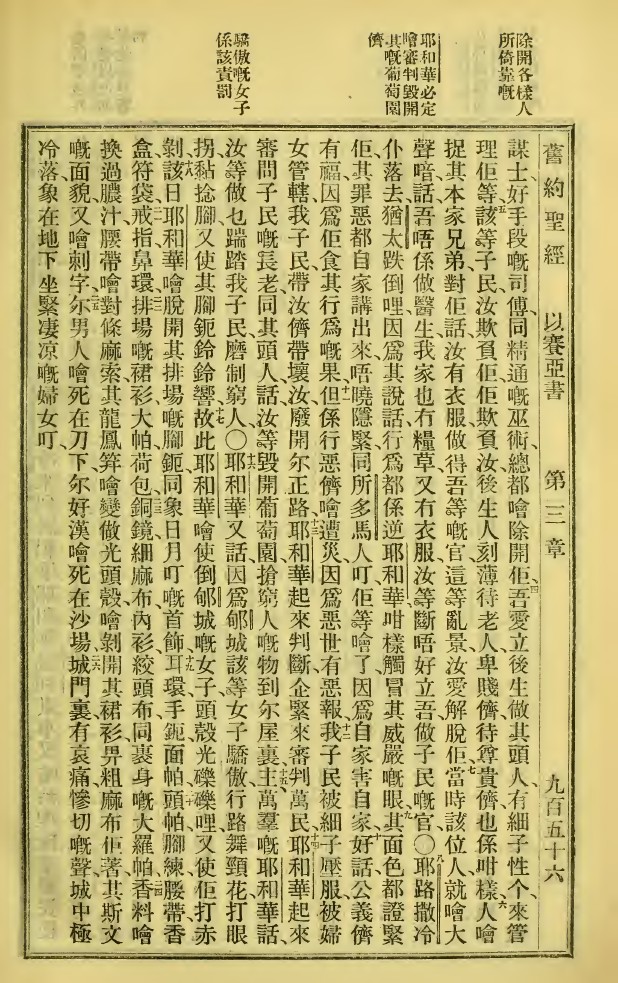 除開各樣人
所倚靠嘅
耶和華必定
噲審判毀開
其嘅葡萄園
儕
驕傲嘅女子
係該責罰
舊約聖經 以賽亞書 第三章 九百五十六
謀士、好手段嘅司傅、同精通嘅巫術、總都噲除開佢、四吾愛立後生做其頭人、有細子性个、來管
理佢等、五該等子民、汝欺負佢、佢欺負汝、後生人刻薄待老人、卑賤儕待尊貴儕也係咁樣、六人噲
捉其本家兄弟、對佢話、汝有衣服、做得吾等嘅官、這等亂景、汝愛解脫佢、七當時該位人就噲大
聲喑話、吾唔係做醫生、我家也冇糧草、又冇衣服、汝等斷唔好立吾做子民嘅官、○八耶路撒冷
仆落去、猶太跌倒哩、因爲其說話行爲、都係逆耶和華、咁樣觸冒其威嚴嘅眼、九其面色都證緊
佢、其罪惡都自家講出來、唔曉隱緊、同所多馬人叮、佢等噲了、因爲自家害自家、十好話公義儕
有福、因爲佢食其行爲嘅果、十一但係行惡儕噲遭災、因爲惡世有惡報、十二我子民被細子壓服、被婦
女管轄、我子民、帶汝儕帶壞汝、廢開尔正路、十三耶和華起來判斷、企緊來審判萬民、十四耶和華起來
審問子民嘅長老、同其頭人話、汝等毀開葡萄園、搶窮人嘅物到尔屋裏、十五主萬羣嘅耶和華話、
汝等做乜踹踏我子民、磨制窮人、○十六耶和華又話、因爲郇城該等女子驕傲、行路舞頸花、打眼
拐、黏捻腳、又使其腳鈪鈴鈴響、十七故此耶和華噲使倒郇城嘅女子、頭殼光礫礫哩、又使佢打赤
剝、十八該日耶和華噲脫開其排場嘅腳鈪、同象日月叮嘅首飾、十九耳環、手鈪、面帕、二十頭帕、腳練、腰帶、香
盒、符袋、二一戒指、鼻環、二二排場嘅裙衫、大帕、荷包、二三銅鏡、細麻布內衫、絞頭布、同裹身嘅大羅帕、二四香料噲
換過膿汁、腰帶噲對條麻索、其龍鳳筓、噲變做光頭殼、噲剝開其裙衫、畀粗麻布佢著、其斯文
嘅面貌、又噲刺字、二五尔男人噲死在刀下、尔好漢噲死在沙場、二六城門裏有哀痛慘切嘅聲、城中極
冷落、象在地下坐緊凄凉嘅婦女叮、